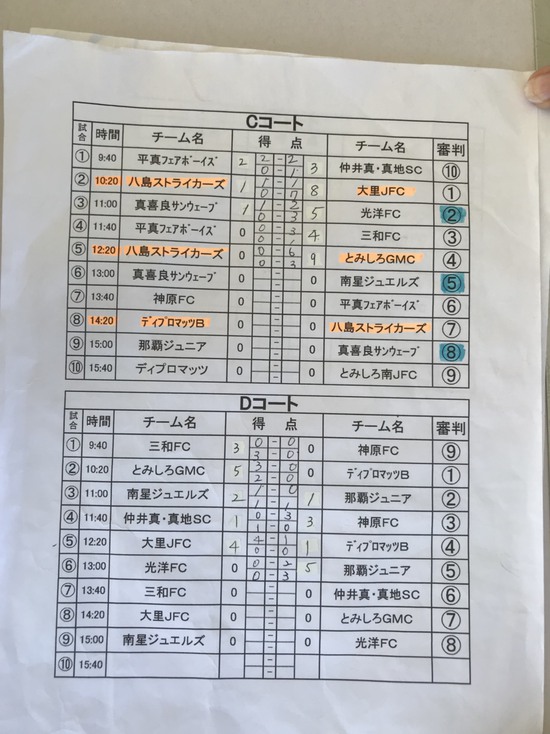 Cコート
試合 時間 チーム名 得 点 チーム名 審判
① 9:40 平真フェアボーイズ 2 2-2 0-1 3 仲井真・真地SC ⑩
② 10:20 八島ストライカーズ 1 1-1 0-7 8 大里JFC ①
③ 11:00 真喜良サンウェーブ 1 1-2 0-3 5 光洋FC ②
④ 11:40 平真フェアボーイズ 0 0-3 0-1 4 三和FC ③
⑤ 12:20 八島ストライカーズ 0 0-6 0-3 9 とみしろGMC ④
⑥ 13:00 真喜良サンウェーブ 0 - - 0 南星ジュエルズ ⑤
⑦ 13:40 神原FC 0 - - 0 平真フェアボーイズ ⑥
⑧ 14:20 ディプロマッツB 0 - - 0 八島ストライカーズ ⑦
⑨ 15:00 那覇ジュニア 0 - - 0 真喜良サンウェーブ ⑧
⑩ 15:40 ディプロマッツ 0 - - 0 とみしろ南JFC ⑨
Dコート
試合 時間 チーム名 得 点 チーム名 審判
① 9:40 三和FC 3 0-0 3-0 0 神原FC ⑨
② 10:20 とみしろGMC 5 3-0 2-0 0 ディプロマッツB ①
③ 11:00 南星ジュエルズ 2 1-0 1-1 1 那覇ジュニア ②
④ 11:40 仲井真・真地SC 1 0-3 1-0 3 神原FC ③
⑤ 12:20 大里JFC 4 4-1 0-0 1 ディプロマッツB ④
⑥ 13:00 光洋FC 0 0-2 0-3 5 那覇ジュニア ⑤
⑦ 13:40 三和FC 0 - - 0 仲井真・真地SC ⑥
⑧ 14:20 大里JFC 0 - - 0 とみしろGMC ⑦
⑨ 15:00 南星ジュエルズ 0 - - 0 光洋FC ⑧
⑩ 15:40 - -